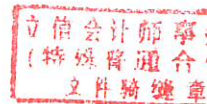 立信会计师事
(特殊普通合
文件骑缝章